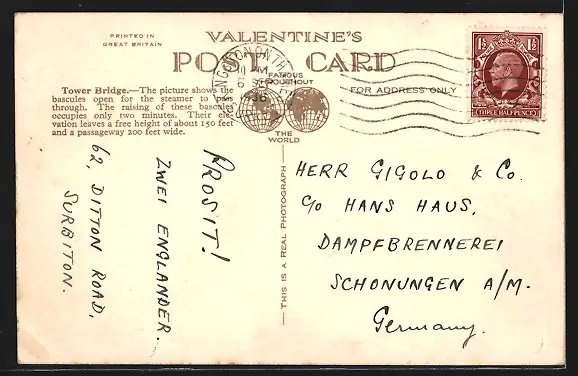 PRINTED IN
GREAT BRITAIN
VALENTINE'S
POST CARD
FAMOUS
THROUGHOUT
THE
WORLD
FOR ADDRESS ONLY
Tower Bridge.—The picture shows the
bascules open for the steamer to pass
through. The raising of these bascules
occupies only two minutes. Their ele-
vation leaves a free height of about 150 feet
and a passageway 200 feet wide.
1½ 1½
THREE HALFPENCE
6 SP
36
PROSIT!
ZWEI ENGLANDER.
62, DITTON ROAD,
SURBITON.
THIS IS A REAL PHOTOGRAPH
HERR GIGOLO & Co.
c/o HANS HAUS,
DAMPFBRENNEREI
SCHONUNGEN A/M.
Germany.